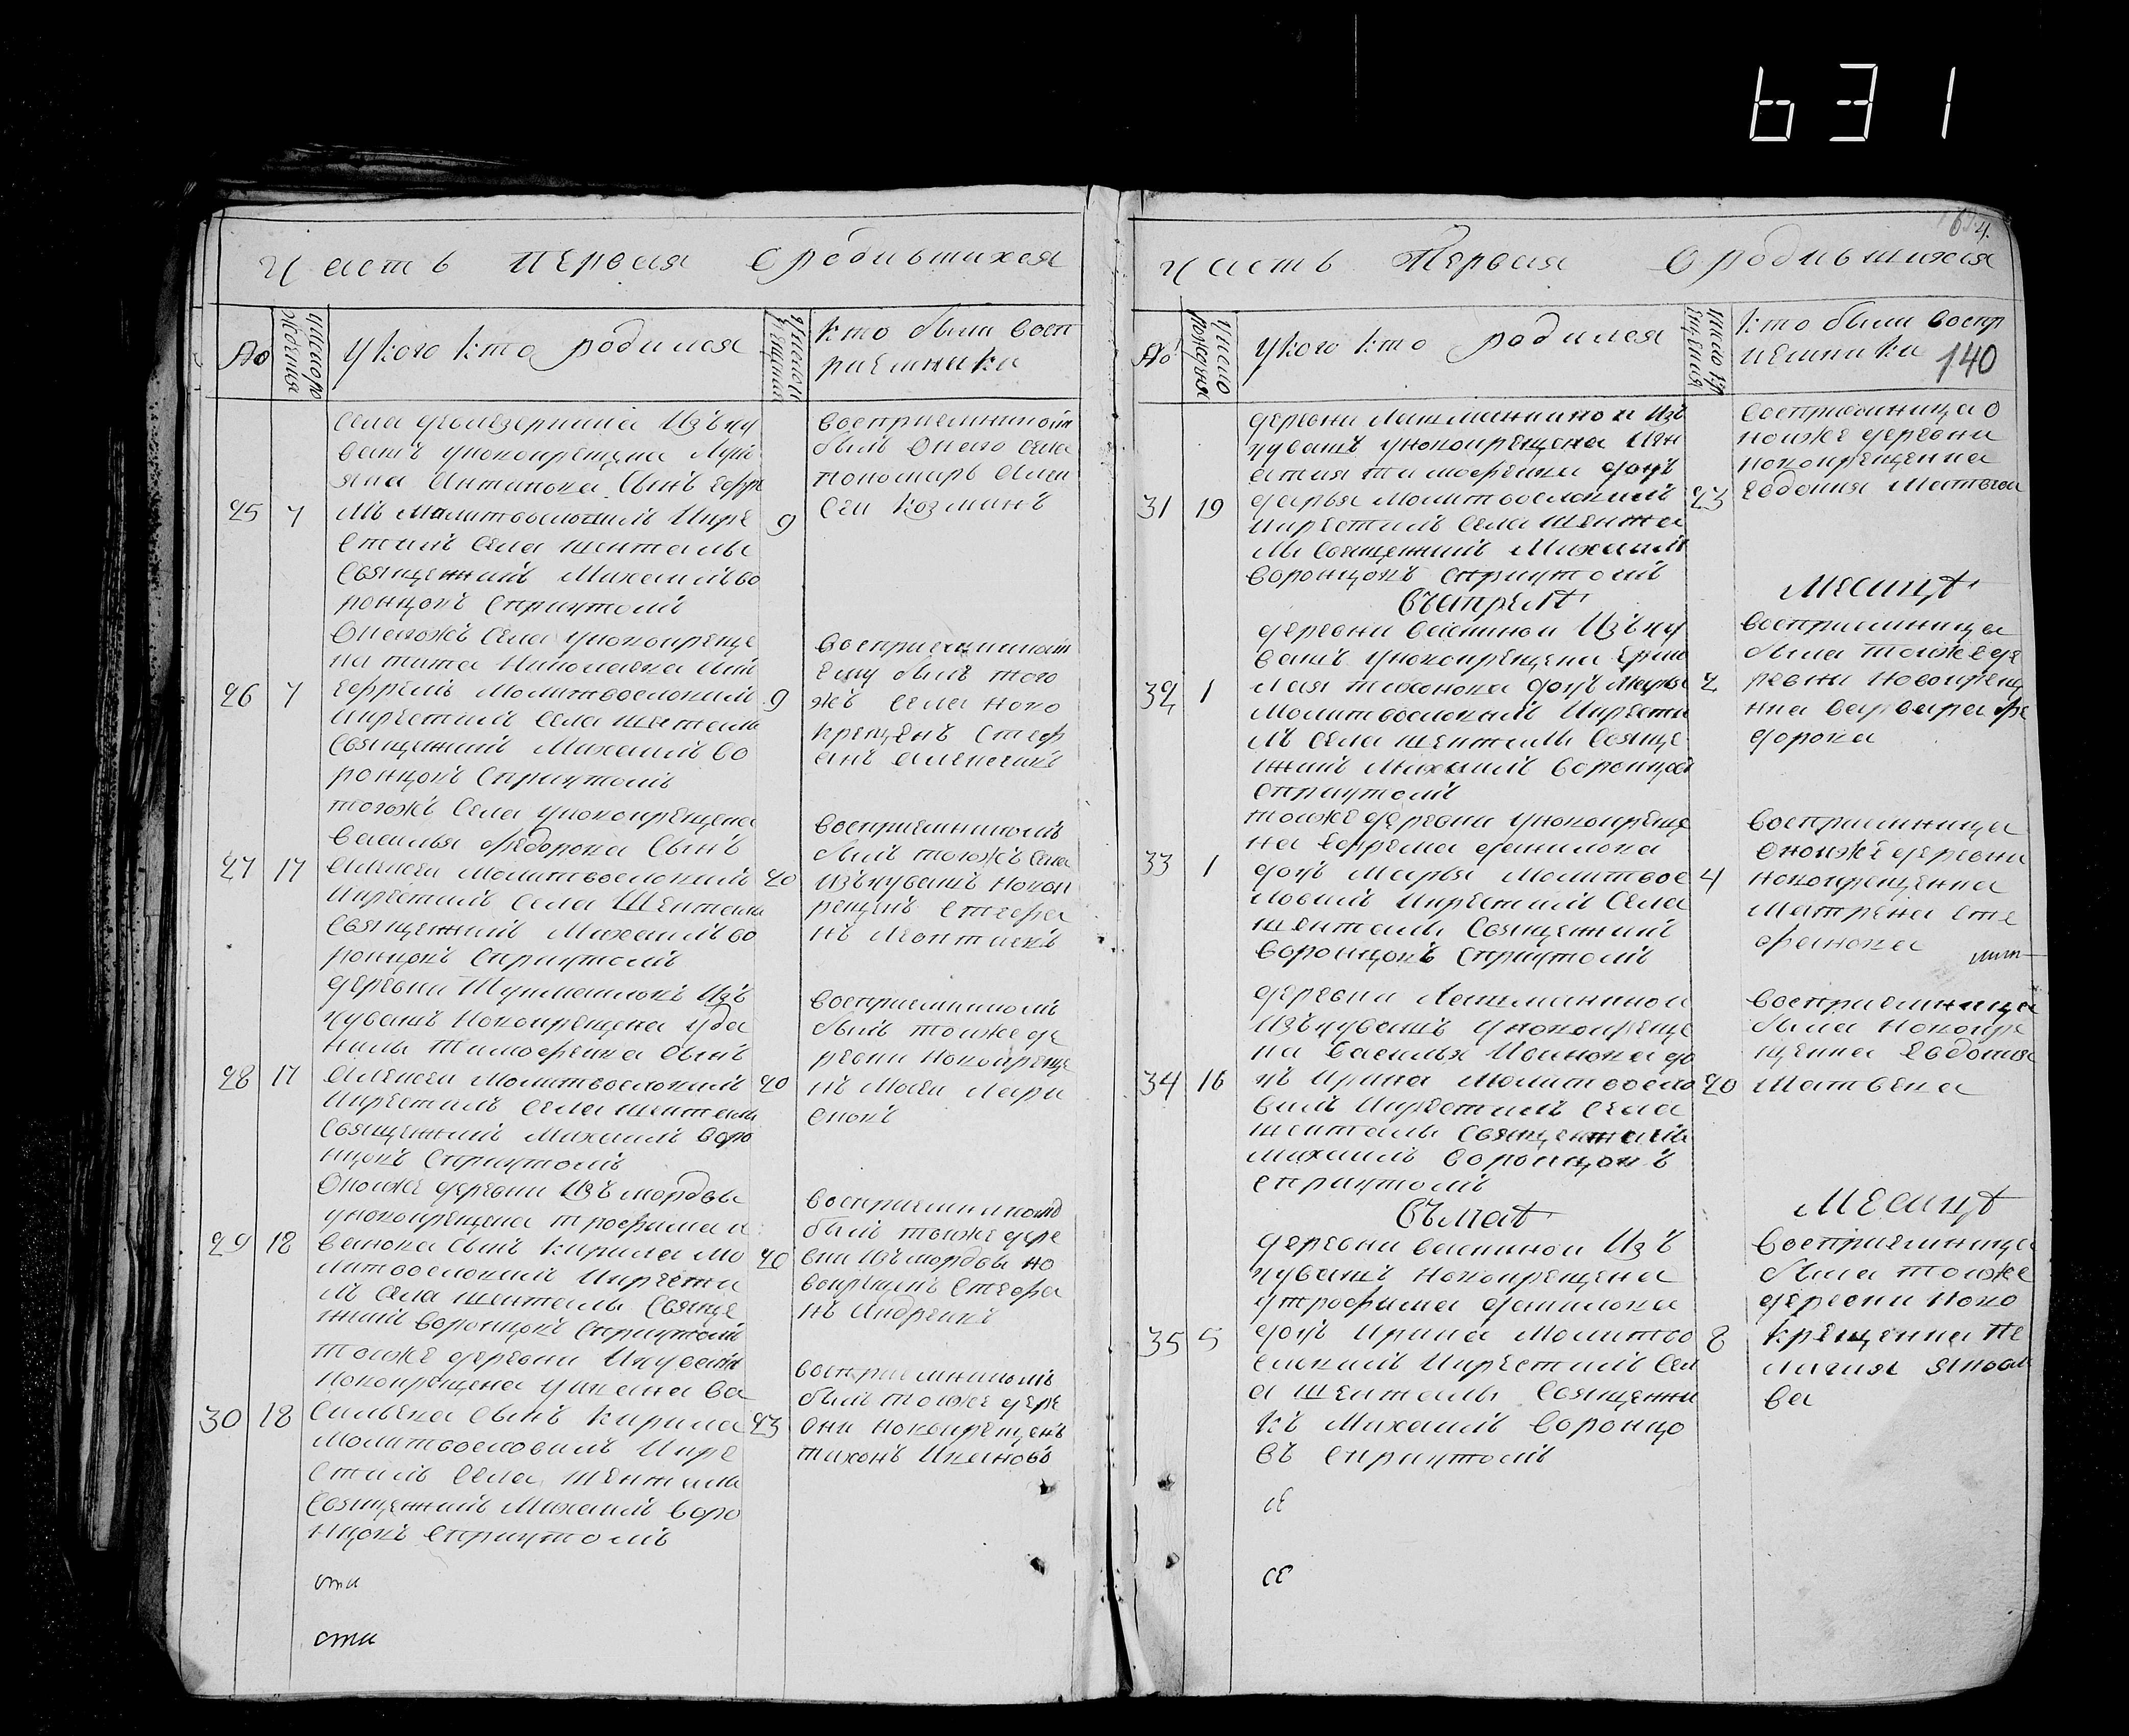 631
Часть первая о родившихся
№
число рождения
У кого кто родился
число крещения
кто были восп
риемники
села
чу
вашъ у новокрещена Лукь
яна Антипова сынъ Ефре
25 7 мъ молитвословилъ и кре 9
стилъ села Шентала
священникъ Михаилъ Во
ронцовъ с причтомъ
восприемникомъ
былъ оного села
пономарь Алек
сеи Козминъ
Оногожъ села у новокреще
на Тита Николаева сынъ
26 7 Ефремъ молитвословилъ 9
и крестилъ села Шентала
священникъ Михаилъ Во
ронцовъ с причтомъ
восприемникомъ
ему былъ того
жъ села ново
крещенъ Стеф
анъ Алексеевъ
тогожъ села у новокрещена
Василья Федорова сынъ
27 17 Алексеи молитвословилъ 20
и крестилъ села Шентала
священникъ Михаилъ Во
ронцовъ с причтомъ
восприемникомъ
былъ тогожъ села
изъ чувашъ новок
рещенъ Стефа
нъ Леонтьевъ
деревни изъ
чувашъ новокрещена у Да
нилы Тимофеева сынъ
28 17 Алексеи молитвословилъ 20
и крестилъ села Шентала
священникъ Михаилъ Воро
нцовъ с причтомъ
восприемникомъ
былъ тоиже де
ревни новокреще
нъ Мосеи Лари
оновъ
Оноиже деревни изъ мордвы
у новокрещена Трофима и
29 18 ванова сынъ Кирила мо 20
литвословилъ и крести
лъ села Шенталы свяще
нникъ Воронцовъ с причтомъ
восприемникомъ
былъ тоиже дере
вни изъ мордвы но
вокрещенъ Стефа
нъ Андреевъ
тоиже деревни
новокрещена у Ивана Ва
30 18 сильева сынъ Кирила 23
молитвословилъ и кре
стилъ села Шентала
священникъ Михаилъ Воро
нцовъ с причтомъ
восприемникомъ
былъ тоиже дере
вни новокрещенъ
Тихонъ Ивановъ
Часть Первая о родившихся
№
число рождения
У кого кто родился
число крещения
кто были воспр
иемники 140
деревни изъ
чувашъ у новокрещена Игн
атия Тимофеева дочь
31 19 Дарья молитвословилъ 23
и крестилъ села Шента
лы священникъ Михаилъ
Воронцовъ с причтомъ
восприемница о
ноиже деревни
новокрещенна
Евдокия Матвеева
въ апреле месяце
деревни Васькинои изъ чу
вашъ у новокрещена Ермо
32 1 лая Тихонова дочь Марья 2
молитвословилъ и крести
лъ села Шенталы свяще
нникъ Михаилъ Воронцовъ
с причтомъ
восприемница
была тоиже де
ревни новокрещ
нна Варвара Фе
дорова
тоиже деревни у новокреще
на Ефрема Данилова
33 1 дочь Марья молитвос 4
ловилъ и крестилъ села
Шенталы священникъ
Воронцовъ с причтомъ
восприемница
оноиже деревни
новокрещенна
Матрена Сте
фанова
деревни
изъ чувашъ у новокреще
на Василья Иванова до
34 16 чь Ирина молитвосло 20
вилъ и крестилъ села
Шенталы священникъ
Михаилъ Воронцовъ
с причтомъ
восприемница
была новокре
щенна Евдокия
Матвеева
въ мае месяце
деревни Васькинои изъ
чувашъ новокрещена
у Трофима Данилова
35 5 дочь Ирина молитво 8
словилъ и крестилъ сел
а Шенталы священни
къ Михаилъ Воронцо
въ с причтомъ
восприемница
была тоиже
деревни ново
крещенна Пе
лагия Яковле
ва